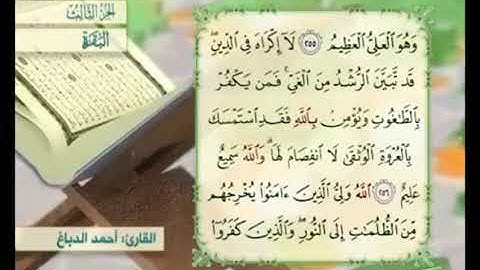 الجزء الثالث
البقرة
وَهُوَ الْعَلِيُّ الْعَظِيمُ ۝٢٥٥ لَآ إِكْرَاهَ فِي الدِّينِ ۖ
قَد تَّبَيَّنَ الرُّشْدُ مِنَ الْغَيِّ ۚ فَمَن يَكْفُرْ
بِالطَّاغُوتِ وَيُؤْمِنۢ بِاللَّهِ فَقَدِ اسْتَمْسَكَ
بِالْعُرْوَةِ الْوُثْقَىٰ لَا انفِصَامَ لَهَا ۗ وَاللَّهُ سَمِيعٌ
عَلِيمٌ ۝٢٥٦ اللَّهُ وَلِيُّ الَّذِينَ ءَامَنُوا يُخْرِجُهُم
مِّنَ الظُّلُمَاتِ إِلَى النُّورِ ۖ وَالَّذِينَ كَفَرُوٓا
القارئ: أحمد الدباغ